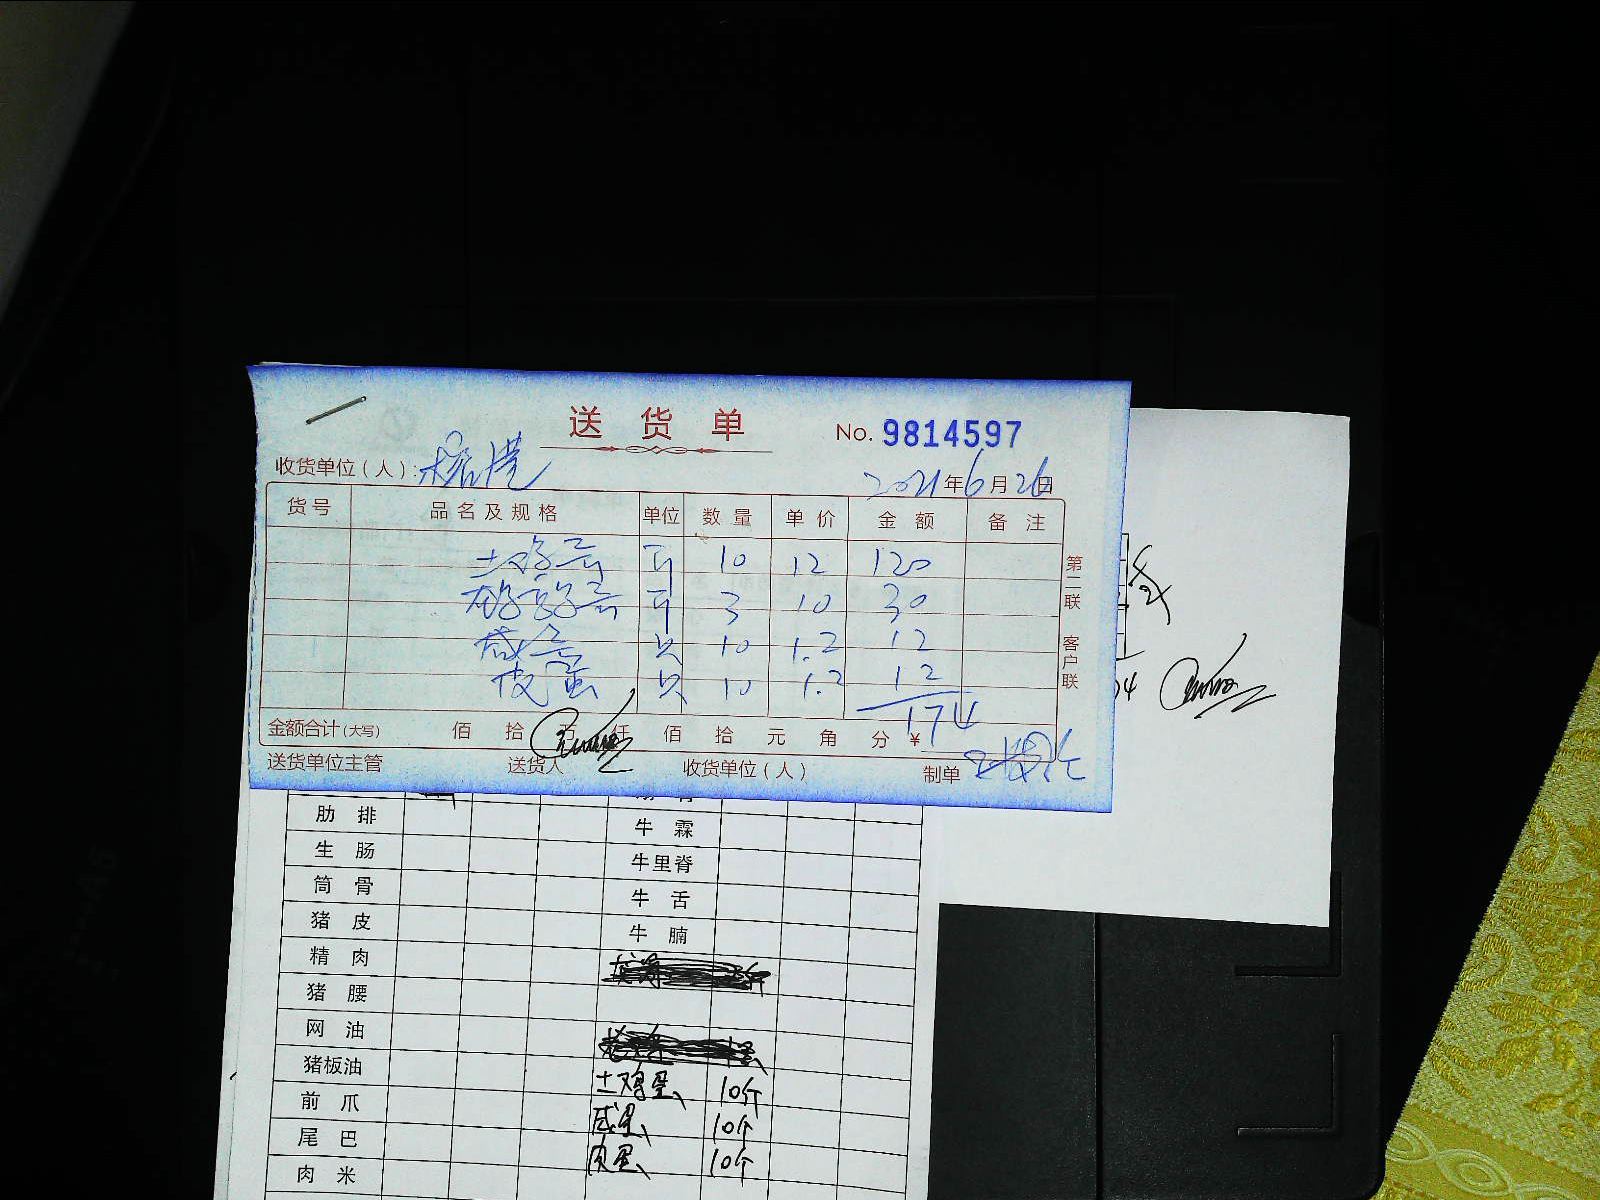 送货单
No. 9814597
收货单位（人）：
2021年6月26日
货号 品名及规格 单位 数量 单价 金额 备注
土鸡蛋 斤 10 12 120
斤 3 10 30
咸蛋 只 10 1.2 12
皮蛋 只 10 1.2 12
174
第二联 客户联
金额合计(大写) 佰 拾 万 仟 佰 拾 元 角 分 ¥
送货单位主管 送货人 收货单位（人） 制单
肋排 牛霖
生肠 牛里脊
筒骨 牛舌
猪皮 牛腩
精肉
猪腰
网油
猪板油 土鸡蛋 10斤
前爪 咸蛋 10个
尾巴 皮蛋 10个
肉米